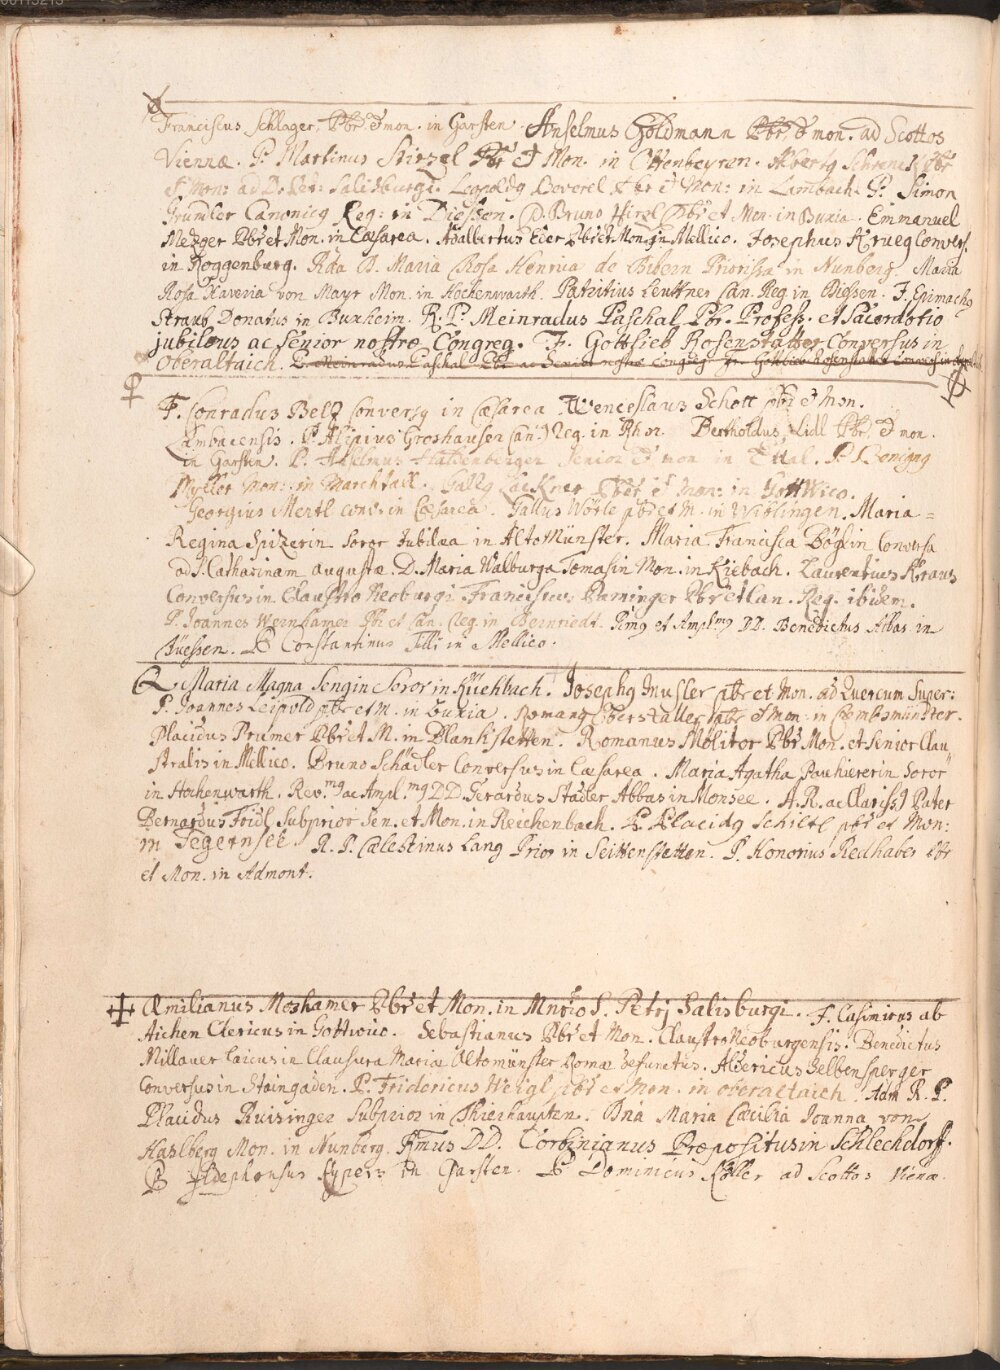 00113213
Franciscus Schlager, Pbr et mon. in Garsten. Anselmus Goldmann Pbr, et mon. ad Scottos
Viennæ. P. Martinus Stirzel Pbr et Mon. in Ottenbeyren. Albertg Schrenck Pbr
et Mon: ad D. Petr: Salisburgi. Leopoldg Beverel Pbr et Mon: in Lambach. P. Simon
Grumler Canonicg Reg: in Diessen. P. Bruno Hirzl Pbr et Mon. in Buxia. Emmanuel
Mezger Pbr et Mon. in Cæsarea. Adalbertus Eder Pbr et Mon. in Mellico. Josephus Krueg Convers.
in Roggenburg. Rda D. Maria Rosa Henrica de Bibern Priorissa in Nunberg. Maria
Rosa Xaveria von Mayr Mon. in Hochenwarth. Patritius Leuttner Can. Reg. in Diessen. F. Epimachg
Straub Donatus in Buxheim. R. P. Meinradus Paschal Pbr. Profess. et Sacerdotio
jubilæus ac Senior nostræ Congreg. F. Gottlieb Rosenstatter Conversus in
Oberaltaich. P. Meinradus Paschal Pbr ac Senior nostræ Congreg. Fr. Gottlieb Rosenstatter Conversus in
F. Conradus Belz Conversg in Cæsarea Wenceslaus Schott pbr et Mon.
Lambacensis. P. Alipius Groshauser Can. Reg. in Rhor. Bertholdus Lidl Pbr, et mon.
in Garsten. P. Anselmus Senior et mon in Ettal. P. Benigng
Myller Mon: in Marchtall. Gallg Lackner Pbr et Mon: in Gottwico.
Georgius Mertl conv. in Cæsarea. Gallus Wörle pbr et M. in Wiblingen. Maria=
Regina Spizerin Soror Jubilæa in Alto Münster. Maria Francisca Böglin Conversa
ad S. Catharinam augustæ. D. Maria Walburga Tomasin Mon. in Kiebach. Laurentius Kraus
Conversus in Claustro Neoburgi. Franciscus Paminger Pbr et Can. Reg. ibidem.
P. Joannes Weinhamer Pbr et Can. Reg. in Bernriedt. Rmg et Amplmg DD. Benedictus Abbas in
Füessen. P Constantinus Filli in Mellico.
Maria Magna Sengin Soror in Küehbach. Josephg Musler pbr et Mon. ad Quercum Super:
P. Joannes Leipold pbr et M. in Buxia. Romang Oberstaller pbr et Mon. in Crembsmünster.
Placidus Prumer Pbr et M. in Plankstetten. Romanus Molitor Pbr Mon. et Senior Clau
stralis in Mellico. Bruno Schädler Conversus in Cæsarea. Maria Agatha Pauhiererin Soror
in Hochenwarth. Rev.mg ac Ampl.mg DD. Gerardus Stadler Abbas in Monsee. A. R. ac Clariss. Pater
Bernardus Fridl Subprior Sen. et Mon. in Reichenbach. P. Placidg Schiltl pbr et Mon:
in Tegernsee. R. P. Cælestinus Lang Prior in Seittenstetten. P. Honorius Redhaber Pbr
et Mon. in Admont.
Æmilianus Moshamer Pbr et Mon. in Mnrio S. Petrj Salisburgi. F. Casimirus ab
Aichen Clericus in Gottwico. Sebastianus Pbr et Mon. Claustro Neoburgensis. Benedictus
Millauer Laicus in Clausura Mariæ Altomünster Romæ defunctus. Aldericus Selbensperger
Conversus in Staingaden. P. Fridericus Weigl pbr et Mon. in oberaltaich. Adm R. P.
Placidus Ruisinger Subprior in Thierhaupten. Dna Maria Cæcilia Joanna von
Haslberg Mon. in Nunberg. Rmus DD. Corbinianus Præpositus in Schlechdorff.
P Ildephonsus in Garsten. P Dominicus Köller ad Scottos Vienæ.